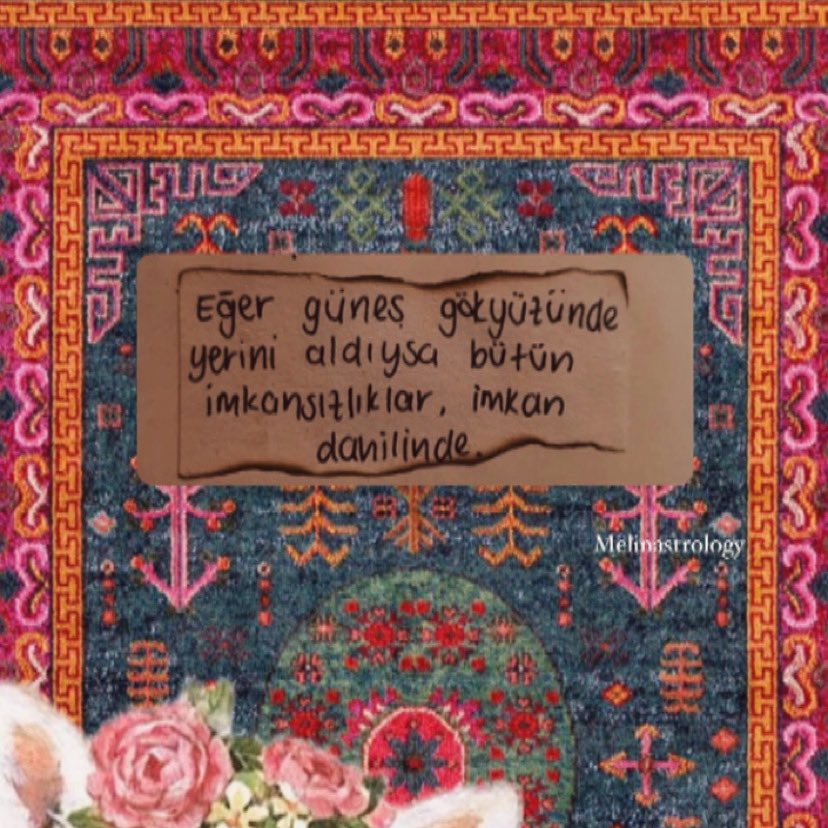 Eğer güneş gökyüzünde
yerini aldıysa bütün
imkansızlıklar, imkan
dahilinde.
Melinastrology